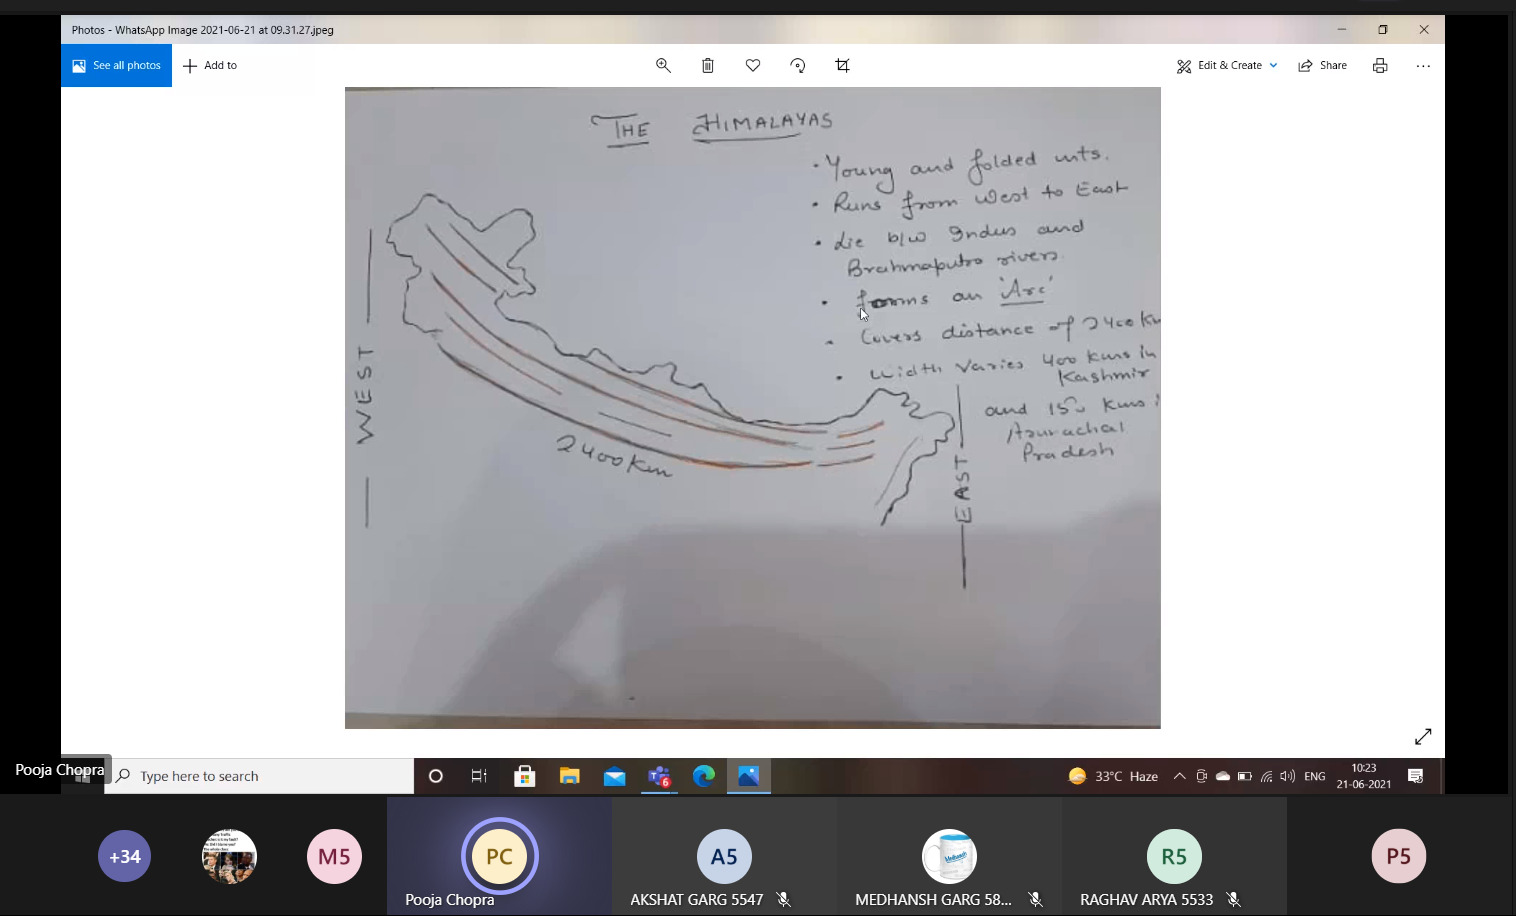 Photos - WhatsApp Image 2021-06-21 at 09.31.27.jpeg
See all photos
Add to
Edit & Create
Share
THE HIMALAYAS
· Young and folded mts.
· Runs from West to East
· Lie b/w Indus and
Brahmaputra rivers.
· forms an 'Arc'
· Covers distance of 2400 Km
· Width varies 400 kms in
Kashmir
and 150 Kms i
Arunachal
Pradesh
WEST
2400 Km
EAST
Pooja Chopra
Type here to search
6
33°C Haze
ENG
10:23
21-06-2021
+34
M5
PC
Pooja Chopra
A5
AKSHAT GARG 5547
MEDHANSH GARG 58...
R5
RAGHAV ARYA 5533
P5